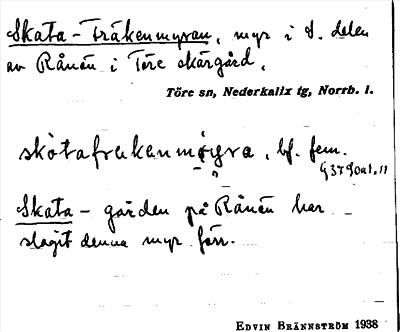 Skata-Träkenmyran, myr i S. delen
av Rånön i Töre skärgård.
Töre sn, Nederkalix tg, Norrb. l.
skòtafrukenmøyra, bf. fem.
Skata-gården på Rånön har
slagit denna myr förr.
EDVIN BRÄNNSTRÖM 1938